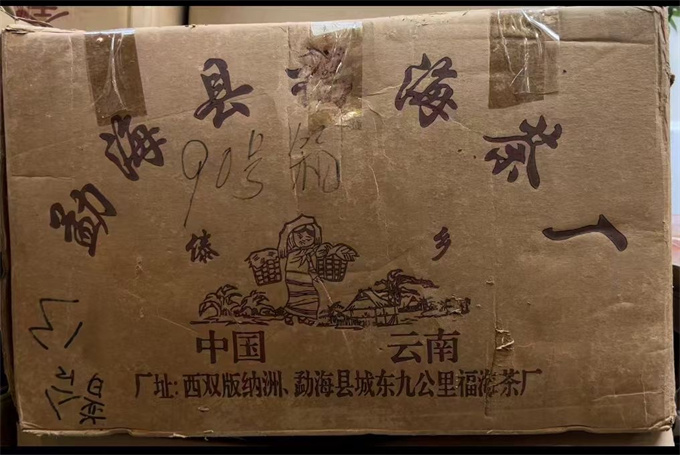 勐海县福海茶厂
90号箱
傣 乡
中国 云南
厂址:西双版纳洲、勐海县城东九公里福海茶厂